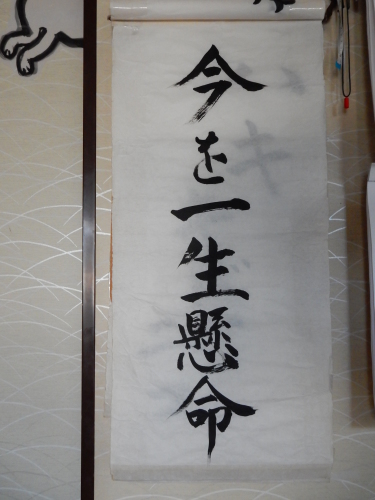 今を一生懸命